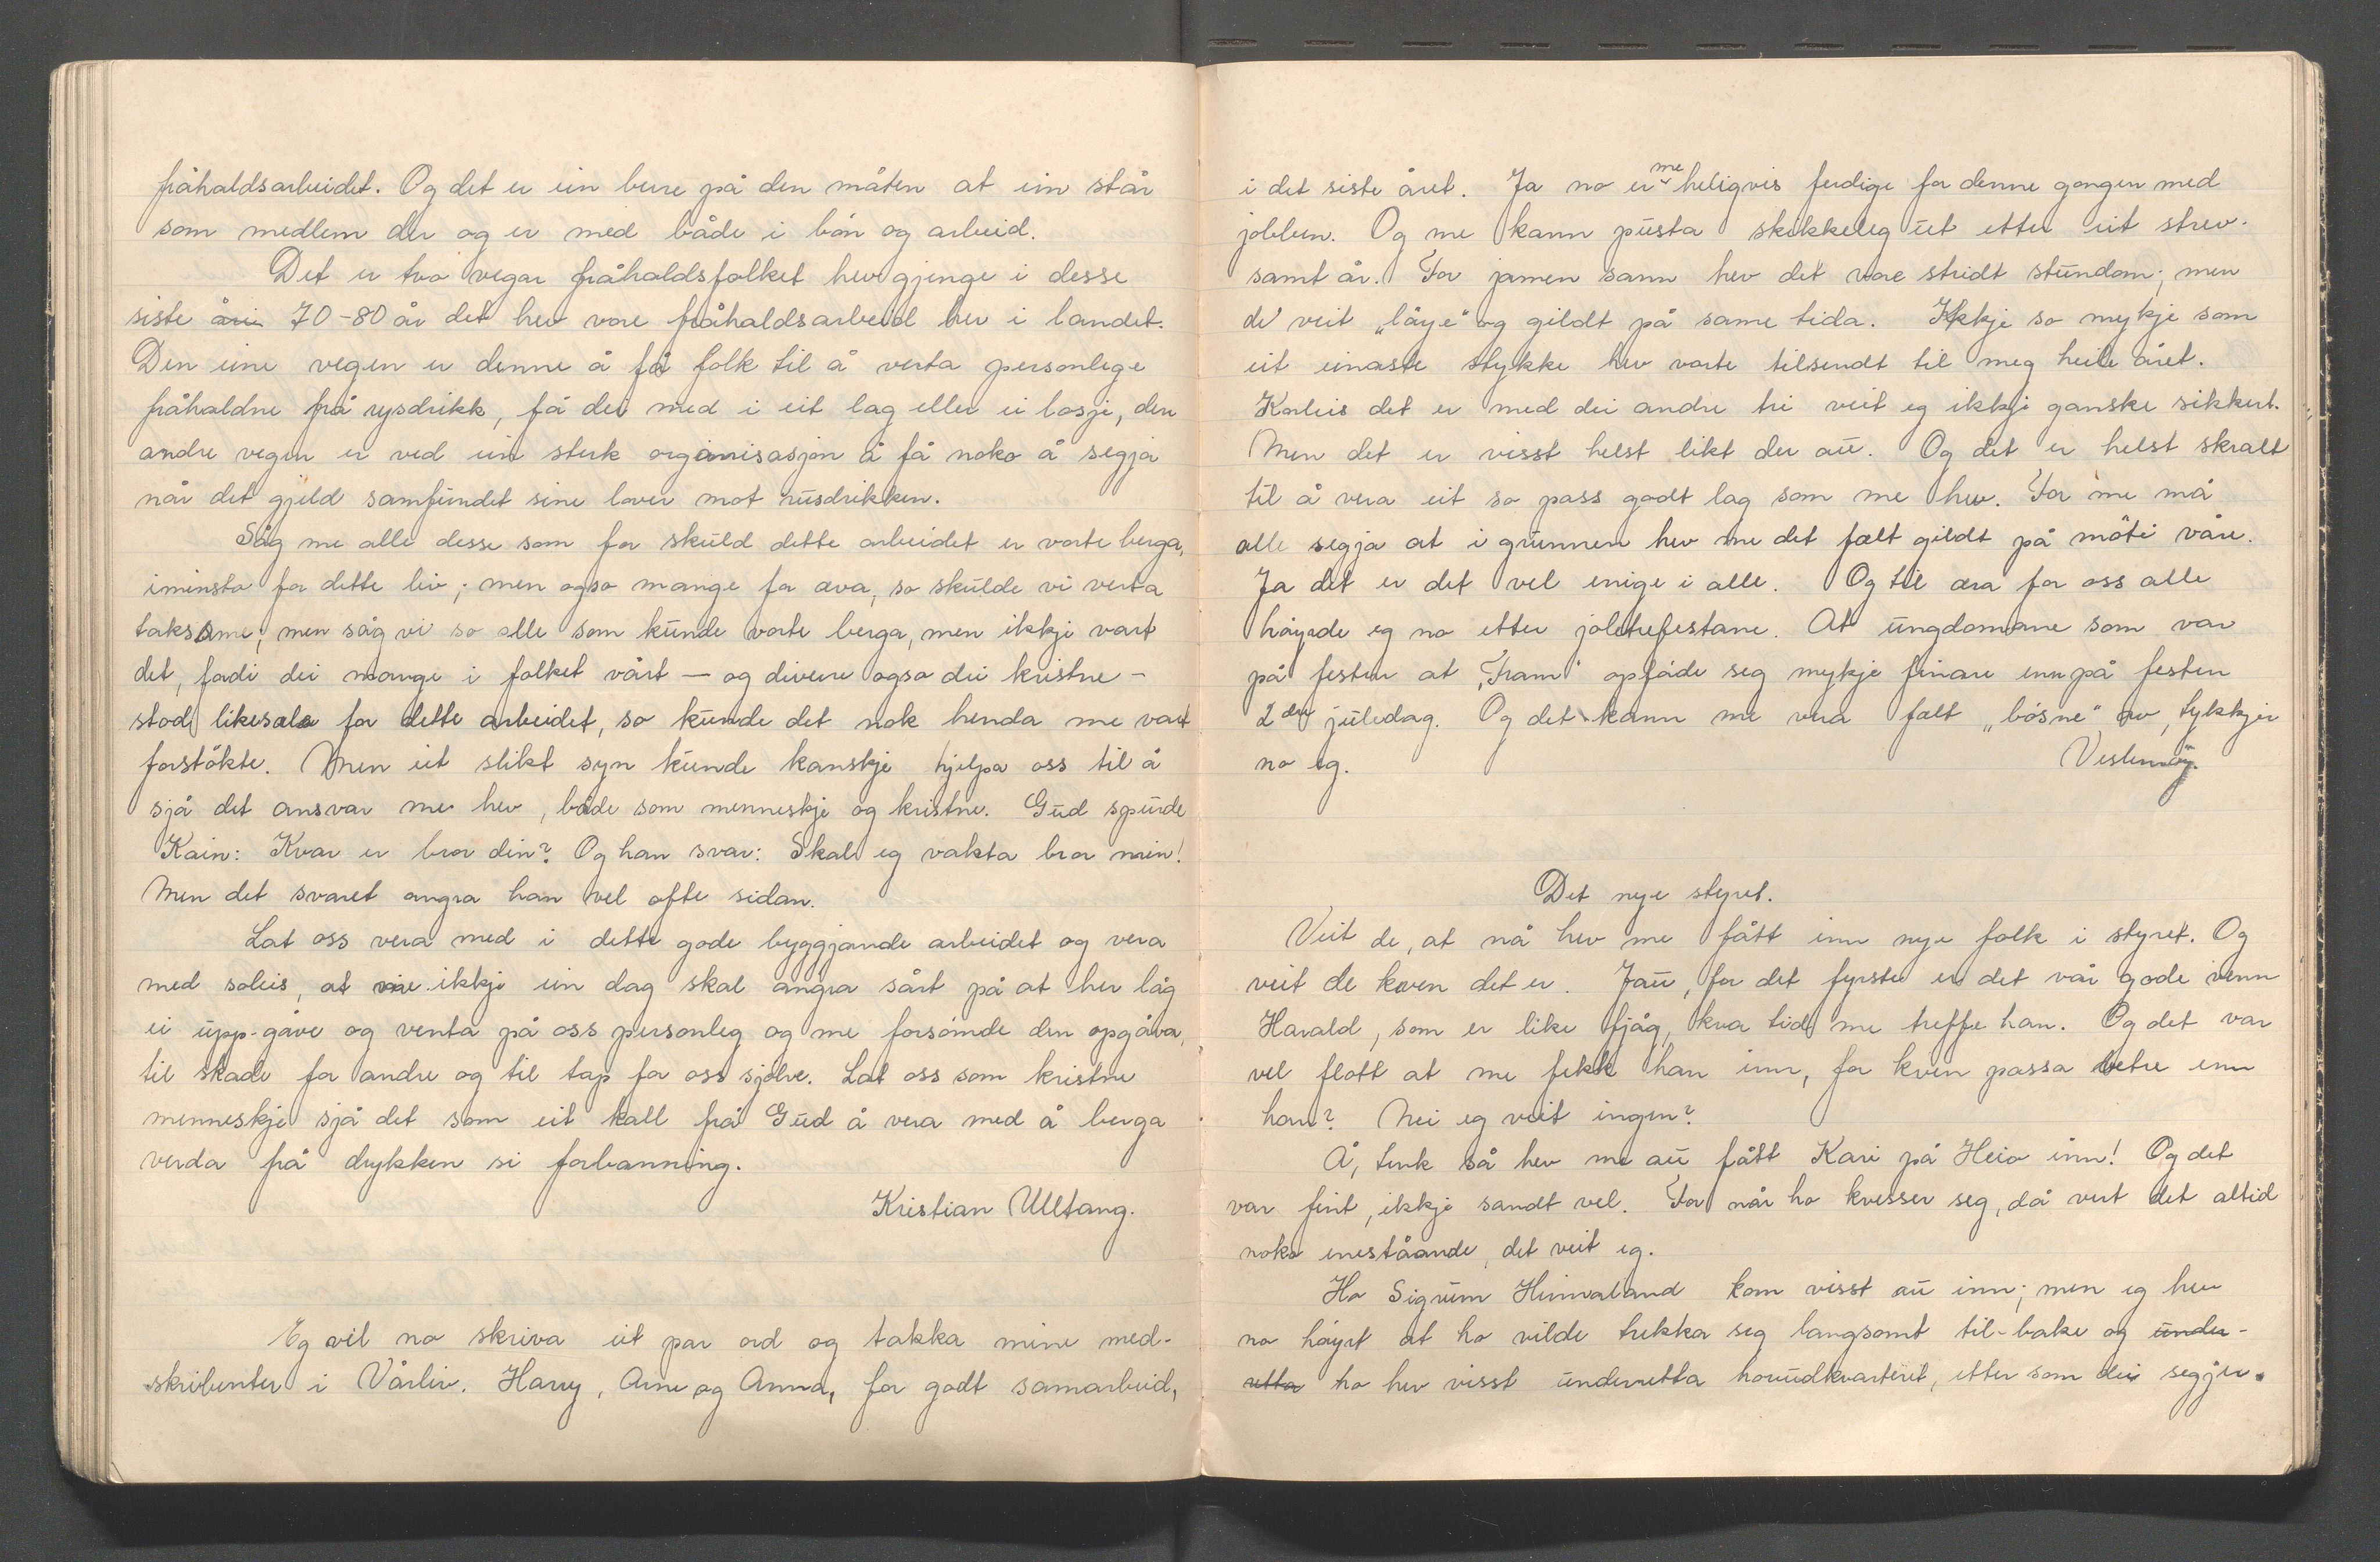 fråhaldsarbeidet. Og det er ein berre på den måten at ein står
som medlem der og er med både i bön og arbeid.
Det er två vegar fråhaldsfolket hev gjenge i desse
siste åri 70-80 år det hev vore fråhaldsarbeid her i landet.
Den eine vegen er denne å få folk til å verta personlege
fråhaldne frå rysdrikk, få dei med i eit lag eller ei losje, den
andre vegen er ved ein sterk organisasjon å få noko å segja
når det gjeld samfundet sine lover mot rusdrikken.
Såg me alle desse som for skuld dette arbeidet er vorte berga,
iminsto for dette liv; men ogso mange for æva, so skulde vi verta
taksame; men såg vi so alle som kunde vorte berga, men ikkje vart
det, fordi dei mange i folket vårt — og diverre ogso dei kristne -
stod likesæla for dette arbeidet, so kunde det nok henda me vart
forstökte. Men eit slikt syn kunde kanskje hjelpa oss til å
sjå det ansvar me hev, både som menneskje og kristne. Gud spurde
Kain: Kvar er bror din? Og han svar: Skal eg vakta bror min!
Men det svaret angra han vel ofte sidan.
Lat oss vera med i dette gode byggjande arbeidet og vera
med soleis, at me ikkje ein dag skal angra sårt på at her låg
ei upp-gåve og venta på oss personleg og me forsömde den opgåva,
til skade for andre og til tap for oss sjölve. Lat oss som kristne
menneskje sjå det som eit kall frå Gud å vera med å berga
verda frå drykken si forbanning.
Kristian Ulltang.
Eg vil no skriva eit par ord og takka mine med-
skribenter i Vårliv. Harry, Arne og Anna, for godt samarbeid,
i det siste året. Ja no er me heligvis ferdige for denne gongen med
jobben. Og me kann pusta skikkeleg ut etter eit strev-
samt år. For jamen sann hev det vore stridt stundom; men
de veit „låye" og gildt på same tida. Ikkje so mykje som
eit einaste stykke hev vorte tilsendt til meg heile året.
Korleis det er med dei andre tri veit eg ikkje ganske sikkert.
Men det er visst helst likt der au. Og det er helst skralt
til å vera eit so pass godt lag som me hev. For me må
alle segja at i grunnen hev me det fælt gildt på möti våre.
Ja det er det vel enige i alle. Og til æra for oss alle
höyrde eg no etter joletrefestane. At ungdomane som var
på festen at „Fram" opfåde seg mykje finare enn på festen
2den juledag. Og det kann me vera fælt „bösne" av, tykkjer
no eg. Veslemöy.
Det nye styret.
Veit de, at nå hev me fått inn nye folk i styret. Og
veit de kven det er. Jau, for det fyrste er det vår gode venn
Harald, som er like fjåg, kva tid me treffe han. Og det var
vel flott at me fekk han inn, for kven passa betre enn
han? Nei eg veit ingen?
Å, tenk så hev me au fått Kari på Heio inn! Og det
var fint, ikkje sandt vel. For når ho kvesser seg, då vert det altid
noko eneståande, det veit eg.
Ho Sigrun Himmaland kom visst au inn; men eg hev
no höyrt at ho vilde trekka seg langsomt til-bake og under-
retta ho hev visst underretta hovudkvarteret, etter som dei segjer.